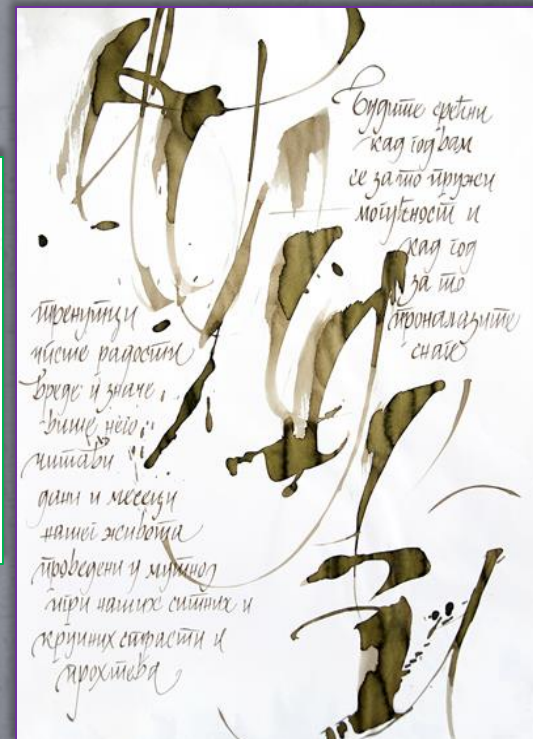 Будите срећни
кад год вам
се за то пружи
могућности и
кад год
за то
проналазите
снаге
тренутци
чисте радости
вреде и значе
више него
читави
дани и месеци
нашег живота
проведени у мутној
игри наших ситних и
крупних страсти и
прохтева